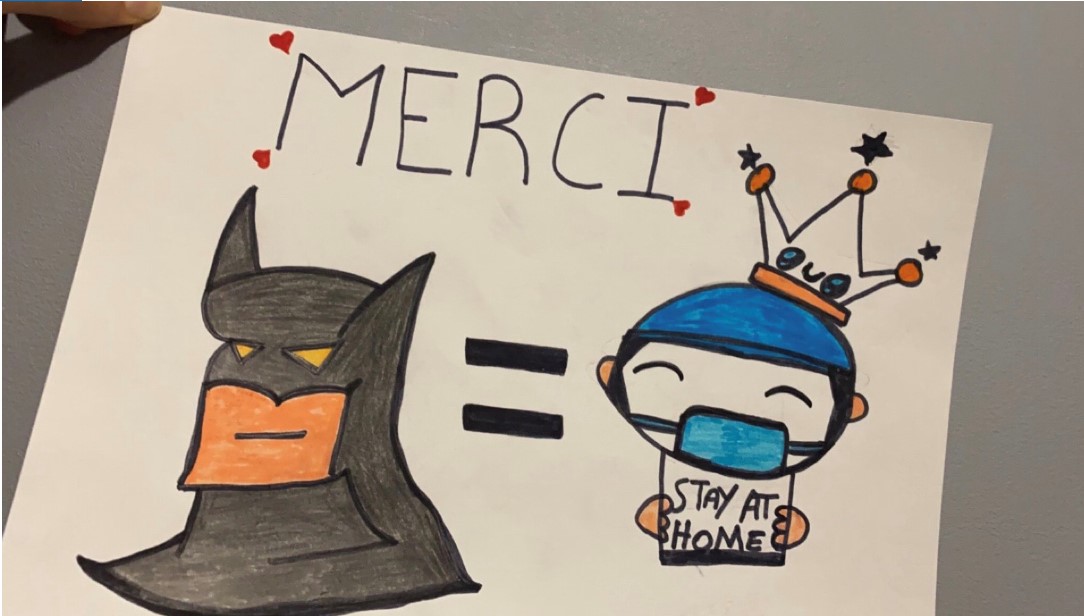 MERCI
=
STAY AT
HOME